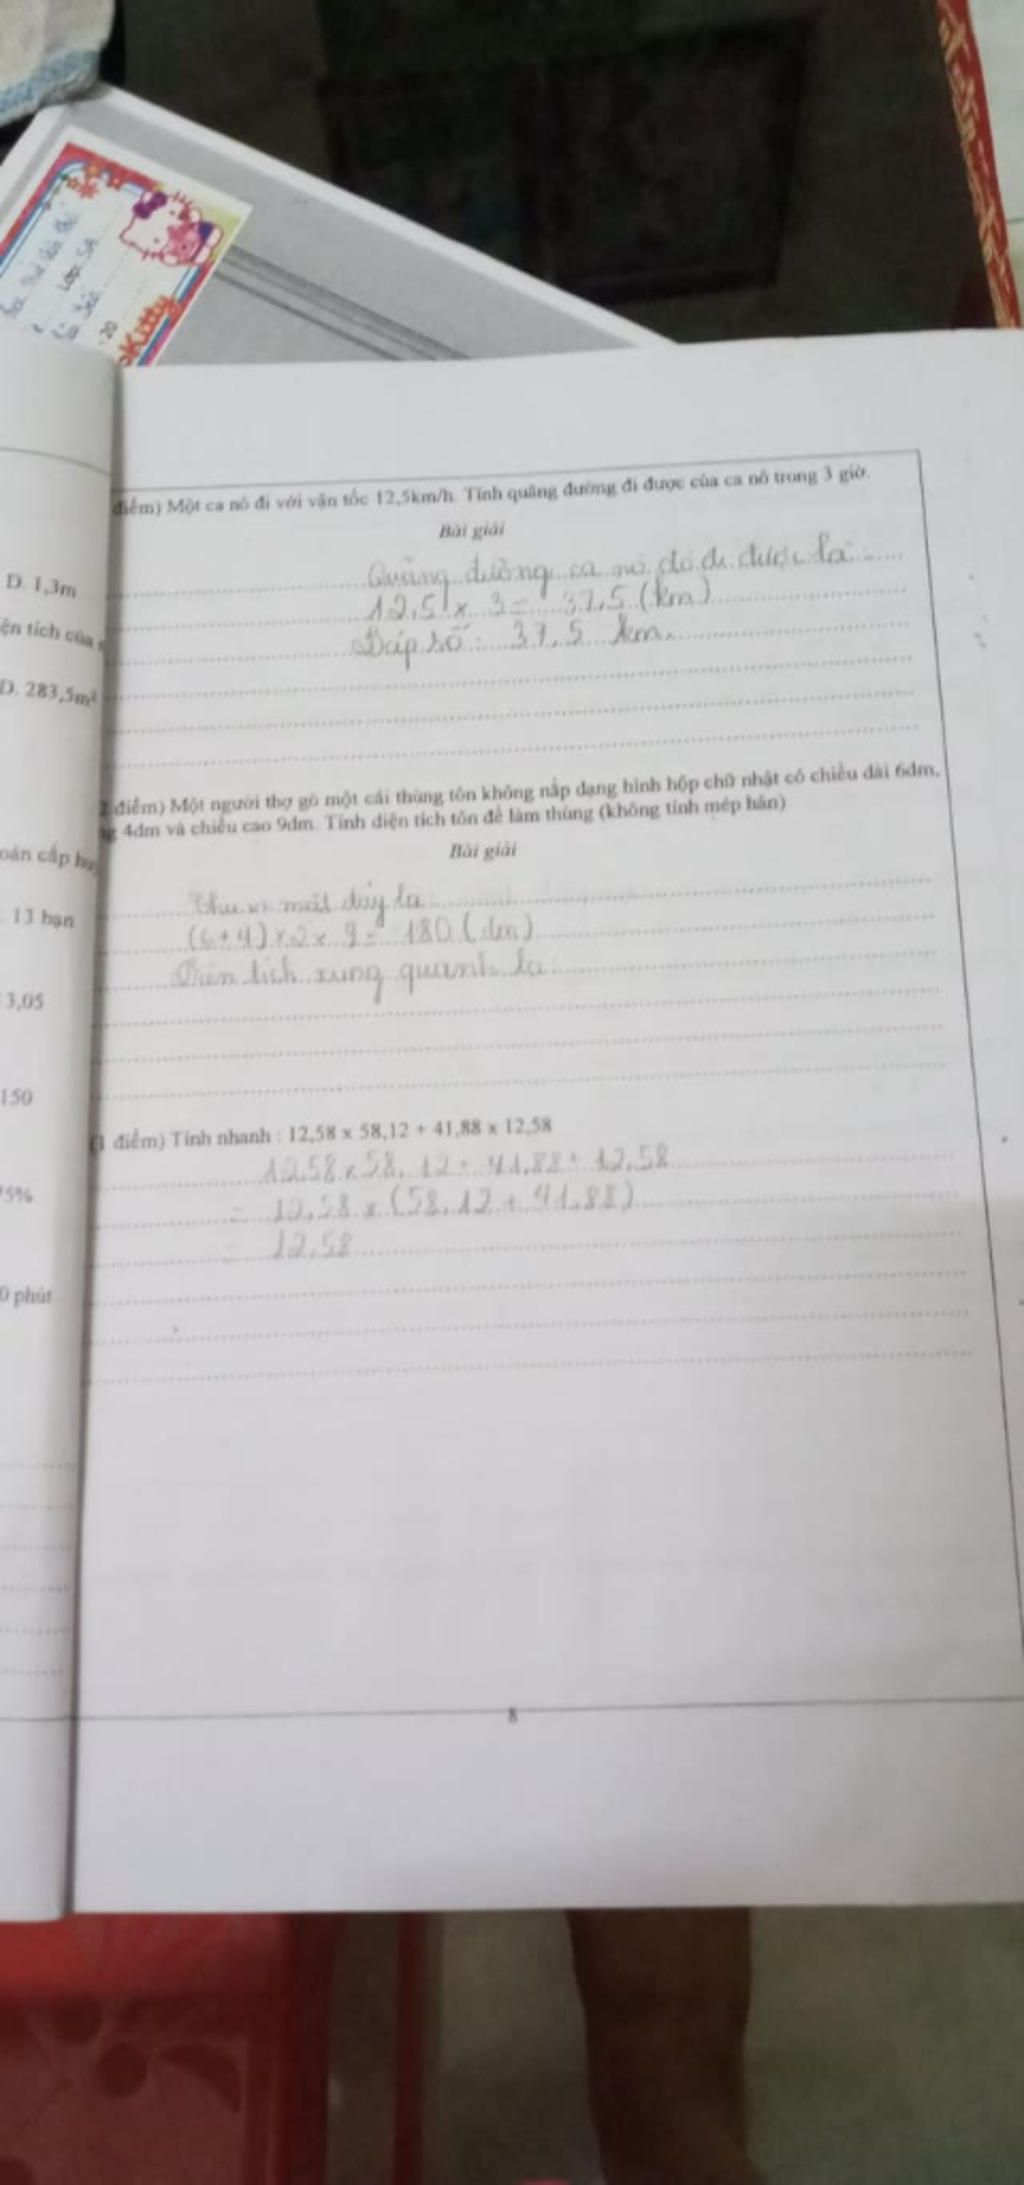 LOP 5A
20
Kitty
điểm) Một ca nô đi với vận tốc 12,5km/h. Tính quãng đường đi được của ca nô trong 3 giờ.
Bài giải
Quãng đường ca nô đó đi được là:
12,5 x 3 = 37,5 (km)
Đáp số: 37,5 km.
điểm) Một người thợ gò một cái thùng tôn không nắp dạng hình hộp chữ nhật có chiều dài 6dm,
4dm và chiều cao 9dm. Tính diện tích tôn để làm thùng (không tính mép hàn)
Bài giải
Chu vi mặt đáy là:
(6+4) x 2 x 9 = 180 (dm)
Diện tích xung quanh là:
(1 điểm) Tính nhanh : 12,58 x 58,12 + 41,88 x 12,58
12,58 x 58,12 + 41,88 + 12,58
= 12,58 x (58,12 + 41,88)
= 12,58
8
D. 1,3m
ện tích của
D. 283,5m²
oán cấp
13 bạn
3,05
150
5%
0 phút